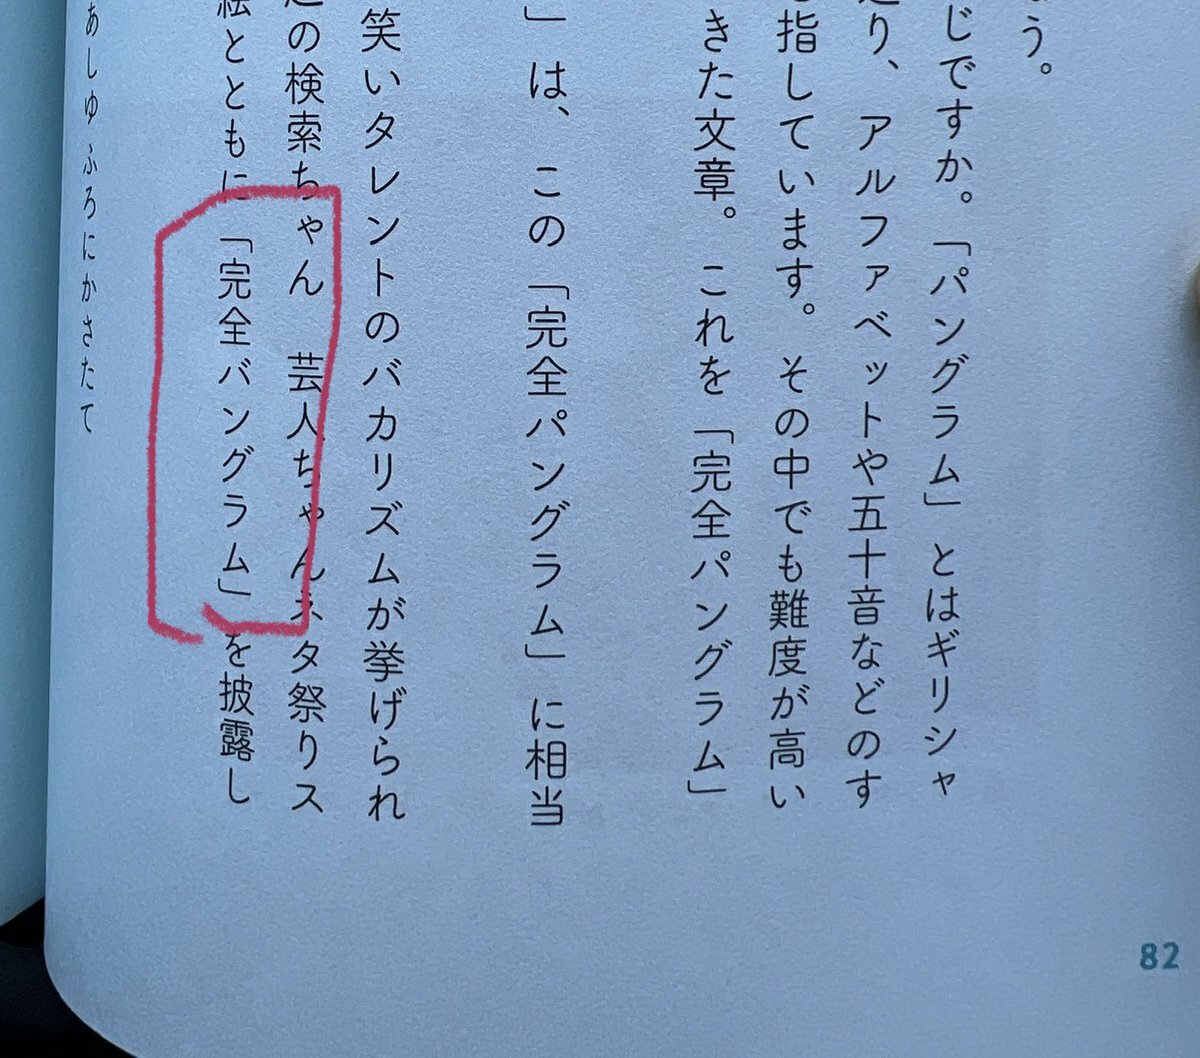 う。
じですか。「パングラム」とはギリシャ
り、アルファベットや五十音などのす
指しています。その中でも難度が高い
きた文章。これを「完全パングラム」
」は、この「完全パングラム」に相当
笑いタレントのバカリズムが挙げられ
の検索ちゃん　芸人ちゃんネタ祭りス
絵とともに「完全バングラム」を披露し
あしゆ ふろにかさたて
82